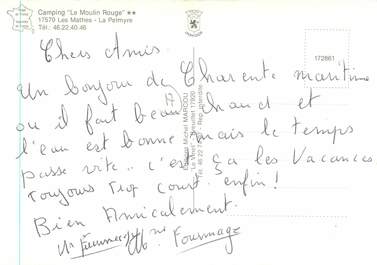 Camping "Le Moulin Rouge" **
17570 Les Mathes - La Palmyre
Tél.: 46.22.40.46
172861
Chers Amis.
Un bonjour de Charente maritime
(17)
ou il fait beau chaud et
l'eau est bonne mais le temps
passe vite.. c'est ça les Vacances
toujours trop court enfin!
Bien Amicalement.
Mr Mme Fourmage